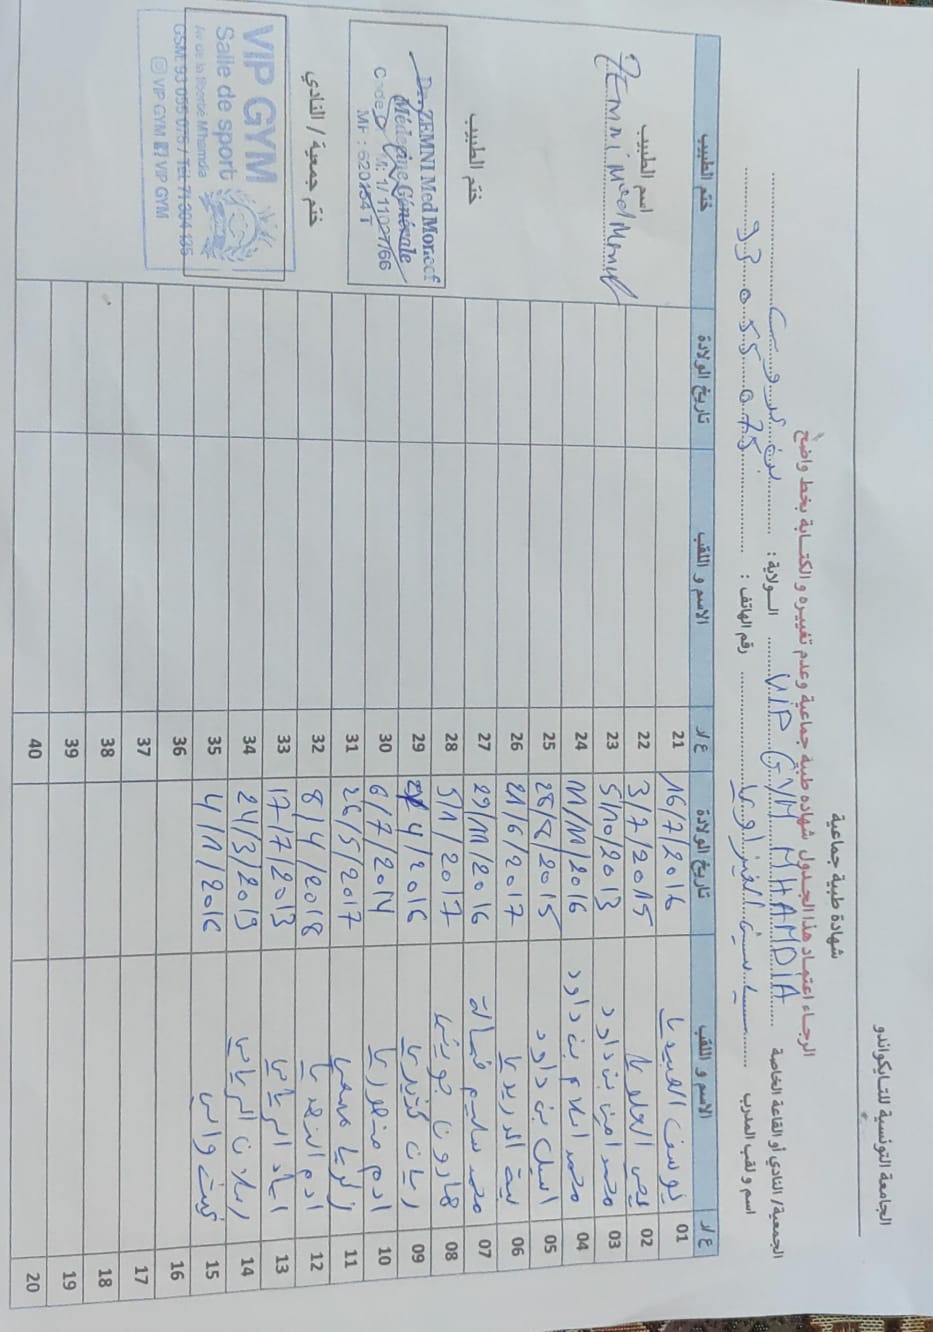 الجامعة التونسية للتايكواندو
شهادة طبية جماعية
الرجاء اعتماد هذا الجدول شهادة طبية جماعية وعدم تغييره والكتابة بخط واضح
الجمعية/ النادي أو القاعة الخاصة VIP GYM MHAMDIA الولاية : بن عروس
اسم و لقب المدرب رقم الهاتف : 93 055 075
ع/ر الاسم و اللقب تاريخ الولادة ع/ر الاسم و اللقب تاريخ الولادة ختم الطبيب
01 يوسف العبيدي 16/7/2016 21
02 العلوي 3/7/2015 22
03 محمد امين بن داود 5/10/2013 23
04 محمد اسلام بن داود 11/11/2016 24
05 اسيل بن داود 28/8/2015 25
06 ليث الدريدي 21/6/2017 26
07 محمد سليم 29/11/2016 27
08 هارون جويني 5/1/2017 28
09 ريان 4/2016 29
10 ادم منصوري 6/7/2014 30
11 زكريا 26/5/2017 31
12 ادم 8/4/2018 32
13 اياد الرياحي 17/7/2013 33
14 ارسلان الرياحي 24/3/2019 34
15 غيث 4/1/2016 35
16 36
17 37
18 38
19 39
20 40
اسم الطبيب
ZEMNI Med Moncef
ختم الطبيب
Dr. ZEMNI Med Moncef
Médecine Générale
MF : 620254 T
ختم جمعية / النادي
VIP GYM
Salle de sport
Av de la liberté Mhamdia
GSM: 93 055 075 / Tel: 71 304 135
VIP GYM VIP GYM